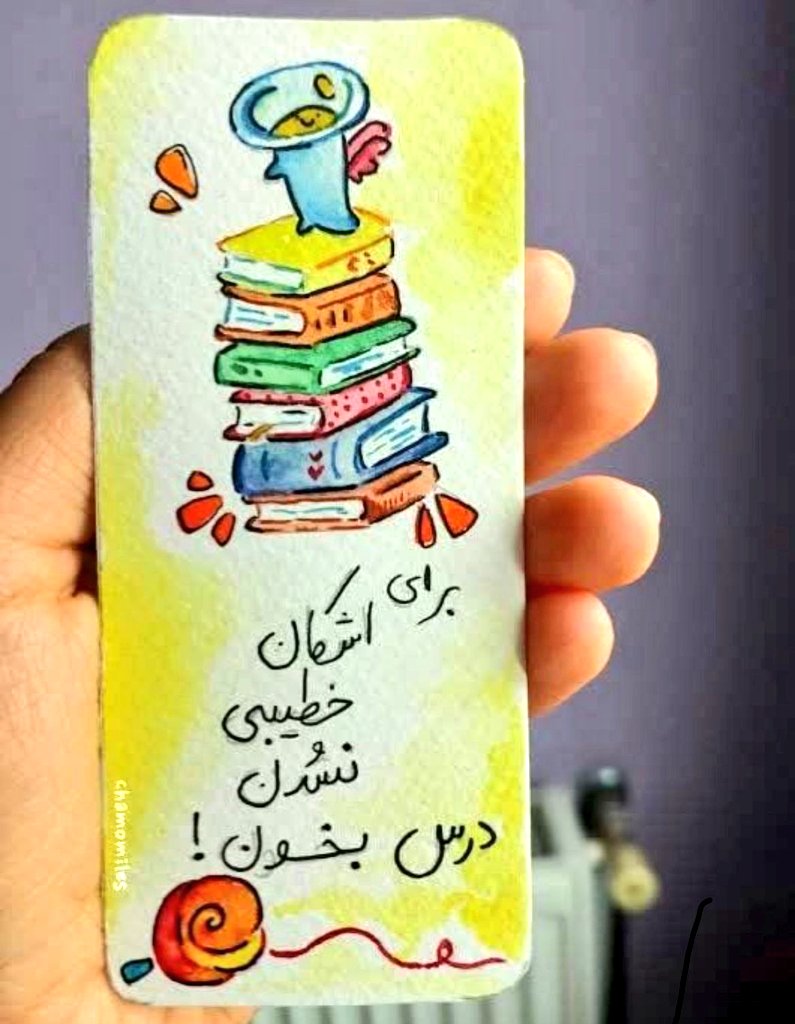 برای
اشکان
خطیبی
نشُدن
درس بخون!
chamomiles